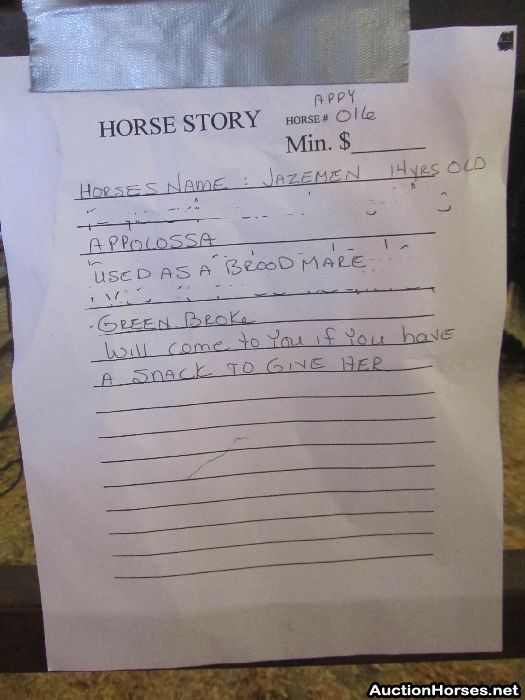 APPY
HORSE STORY HORSE # 016
Min. $
HORSES NAME : JAZEMEN 14YRS OLD
APPOLOSSA
USED AS A BROOD MARE
GREEN BROKE
Will come to you if you have
A SNACK TO GIVE HER
AuctionHorses.net